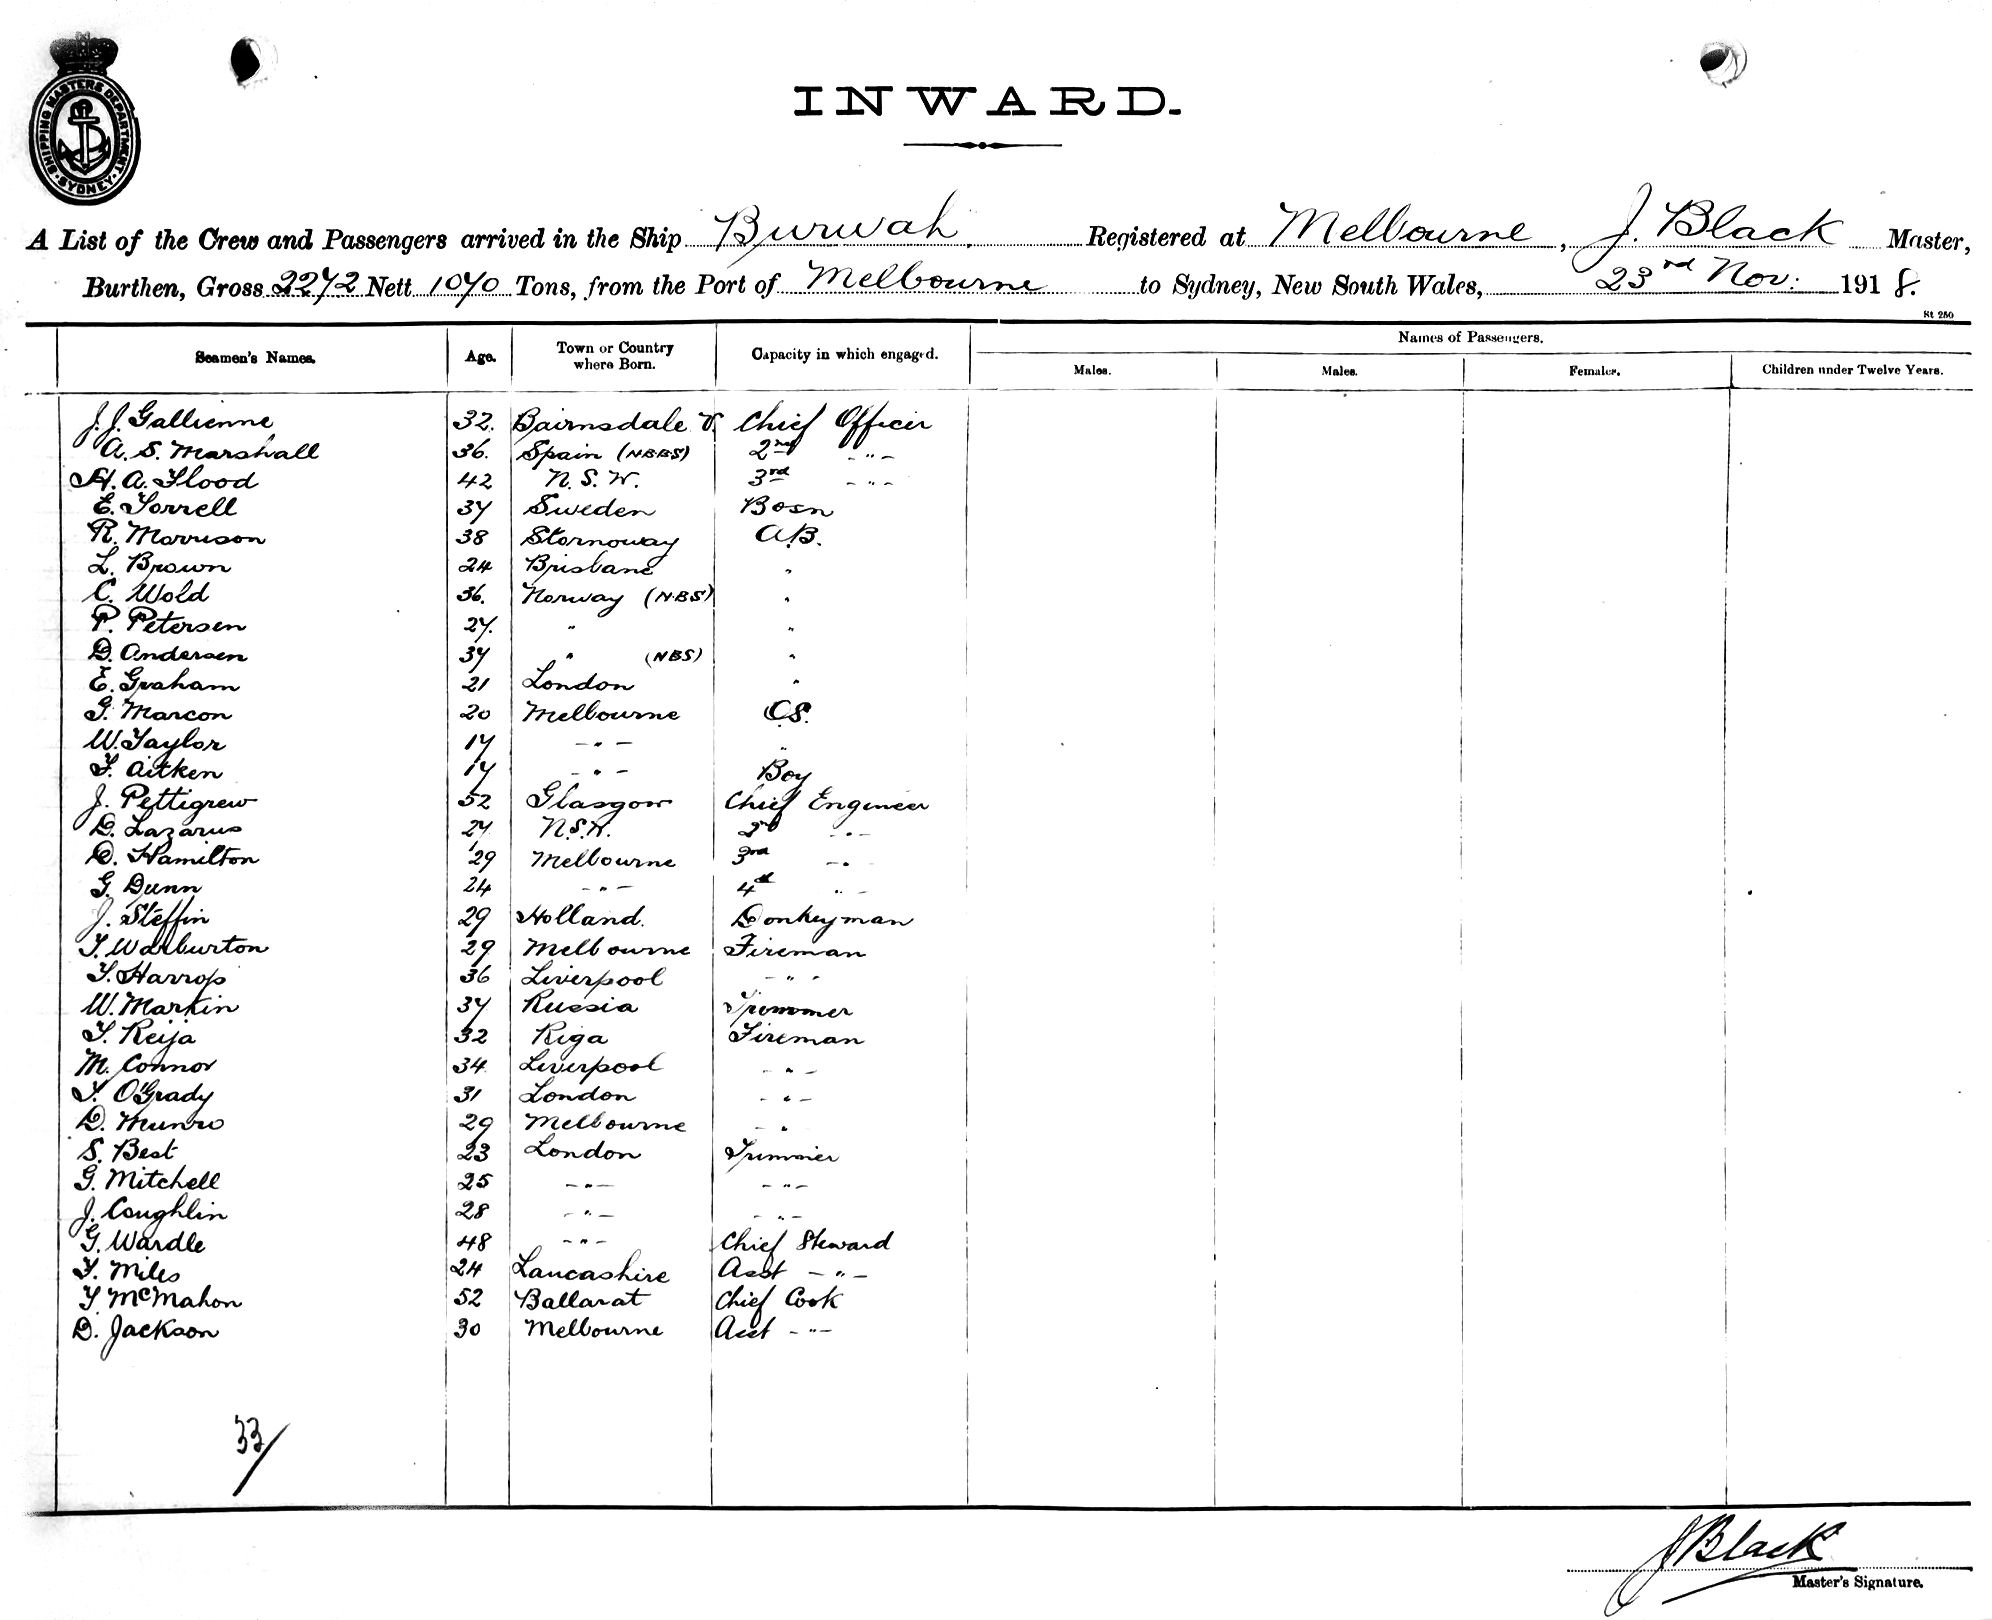 SHIPPING MASTERS DEPARTMENT
SYDNEY
INWARD.
A List of the Crew and Passengers arrived in the Ship Burwah. Registered at Melbourne, J. Black Master,
Burthen, Gross 2272 Nett 1070 Tons, from the Port of Melbourne to Sydney, New South Wales, 23rd Nov: 1918.
St 250
Seamen's Names. Age. Town or Country where Born. Capacity in which engaged. Names of Passengers.
Males. Males. Females. Children under Twelve Years.
J. J. Gallienne 32. Bairnsdale V. Chief Officer
A. S. Marshall 36. Spain (NBBS) 2nd -"-
H. A. Flood 42 N. S. W. 3rd -"-
E. Torrell 37 Sweden Bosn
R. Morrison 38 Stornoway A.B.
L. Brown 24 Brisbane "
C. Wold 36. Norway (N.B.S) "
P. Petersen 27. " "
D. Andersen 37 " (NBS) "
E. Graham 21 London "
G. Marcon 20 Melbourne O.S.
W. Taylor 17 -"- "
F. Aitken 17 -"- Boy
J. Pettigrew 52 Glasgow Chief Engineer
D. Lazarus 27 N.S.W. 2nd -"-
D. Hamilton 29 Melbourne 3rd -"-
G. Dunn 24 -"- 4th "-
J. Steffin 29 Holland. Donkeyman
T. Warburton 29 Melbourne Fireman
T. Harrop 36 Liverpool -"-
W. Markin 37 Russia Trimmer
T. Reija 32 Riga Fireman
M. Connor 34 Liverpool -"-
T. O'Grady 31 London -"-
D. Munro 29 Melbourne -"
S. Best 23 London Trimmer
G. Mitchell 25 -"- -"-
J. Coughlin 28 -"- -"-
G. Wardle 48 -"- Chief Steward
T. Miles 24 Lancashire Asst -"-
T. McMahon 52 Ballarat Chief Cook
D. Jackson 30 Melbourne Asst -"-
33/
J Black
Master's Signature.